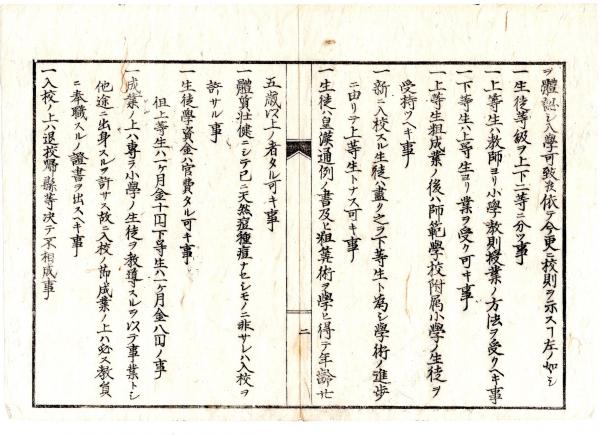 ヲ體認シ入學可致哀依テ今更ニ校則ヲ示スヿ左ノ如シ
一生徒等級ヲ上下二等ニ分ツ事
一上等生ハ教師ヨリ小學教則授業ノ方法ヲ受クヘキ事
一下等生ハ上等生ヨリ業ヲ受ク可キ事
一上等生粗成業ノ後ハ師範學校附属小學ノ生徒ヲ
受持ツヘキ事
一新ニ入校スル生徒ハ盡ク之ヲ下等生ト為シ學術ノ進歩
ニ由リテ上等生トナス可キ事
一生徒ハ皇漢通例ノ書及ヒ粗筭術ヲ學ヒ得テ年齢廿
五歳以上ノ者タル可キ事
一體質壮健ニシテ已ニ天然痘種痘ナセシモノニ非サレハ入校ヲ
許サル事
一生徒學資金ハ官費タル可キ事
但上等生ハ一ヶ月金十円下等生ハ一ヶ月金八円ノ事
一成業ノ上ハ専ラ小學ノ生徒ヲ教導スルヲ以テ事業トシ
他途ニ出身スルヲ許サス故ニ入校ノ節成業ノ上ハ必ス教員
ニ奉職スルノ證書ヲ出スヘキ事
一入校ノ上ハ退校帰縣等决テ不相成事
二